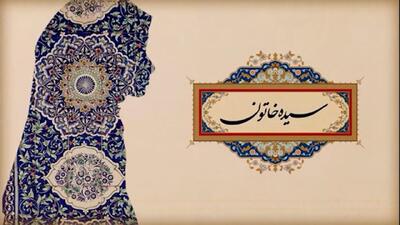 سیده خاتون